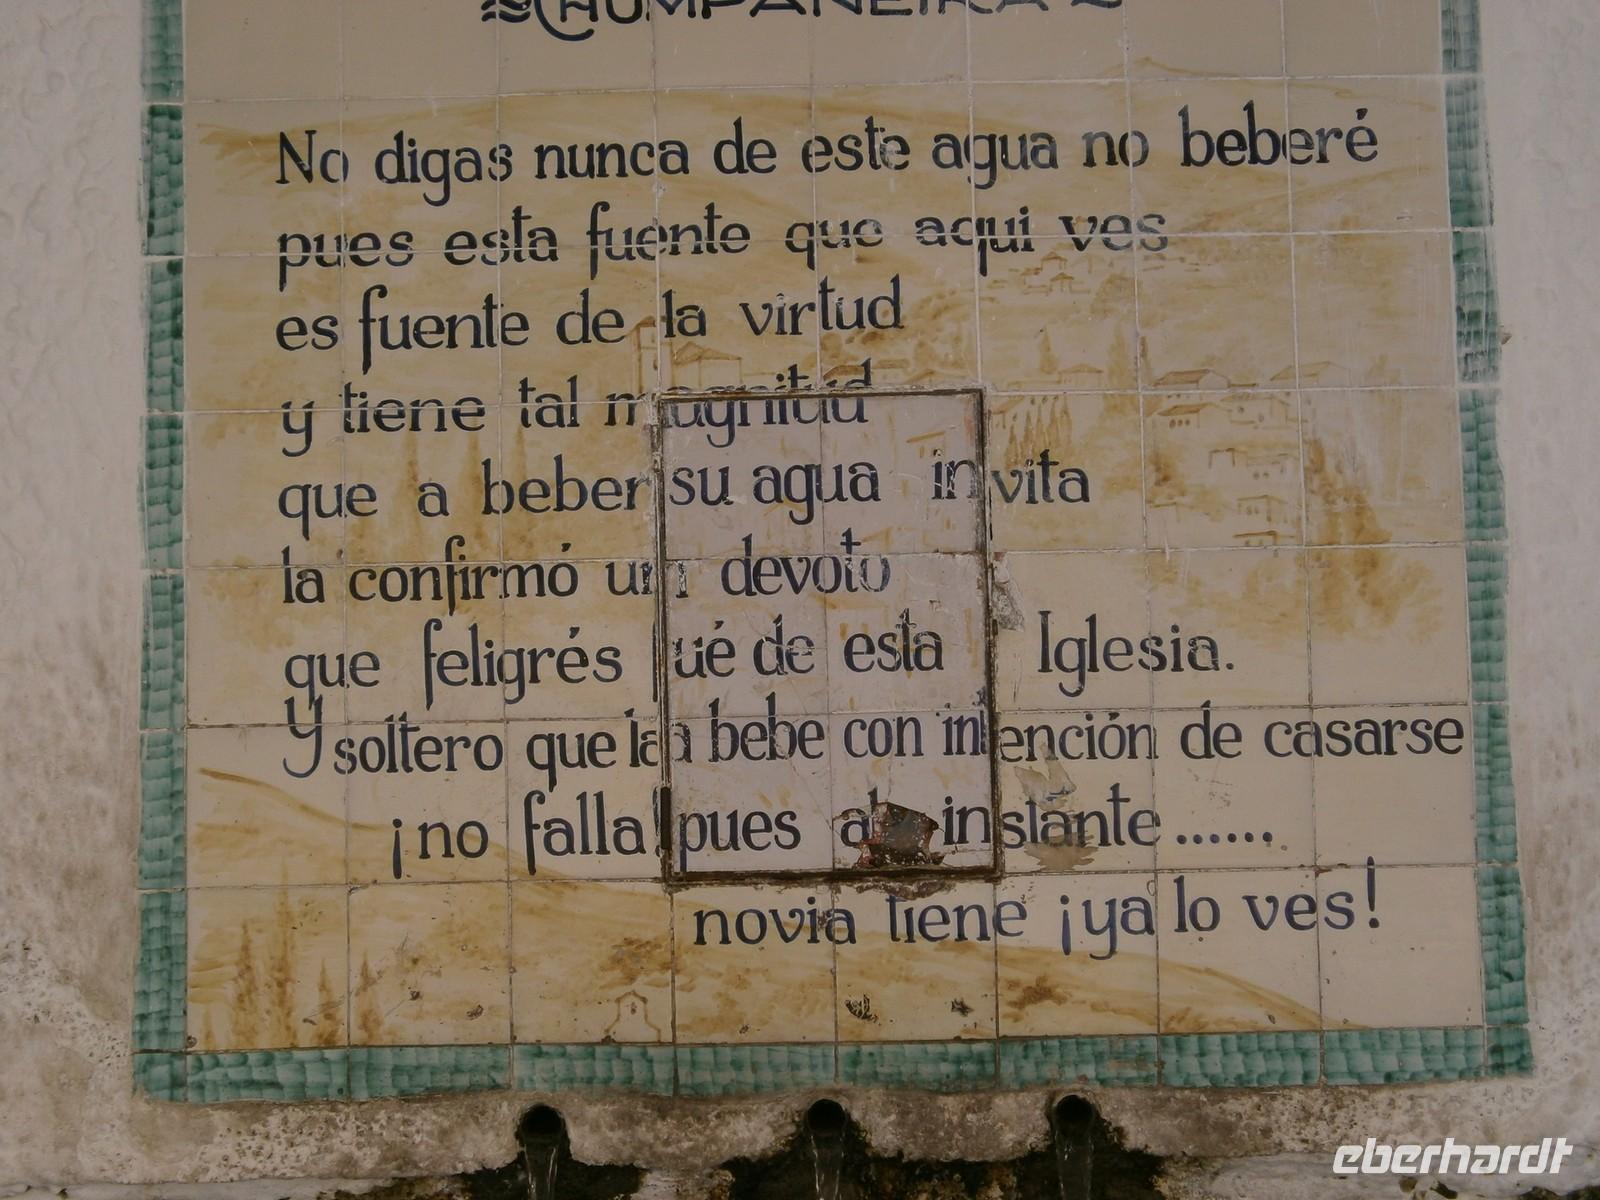 CHUMPANEIRA
No digas nunca de este agua no beberé
pues esta fuente que aqui ves
es fuente de la virtud
y tiene tal magnitud
que a beber su agua invita
la confirmó un devoto
que feligrés fué de esta Iglesia.
y soltero que la bebe con intención de casarse
¡no falla! pues al instante......
novia tiene ¡ya lo ves!
eberhardt